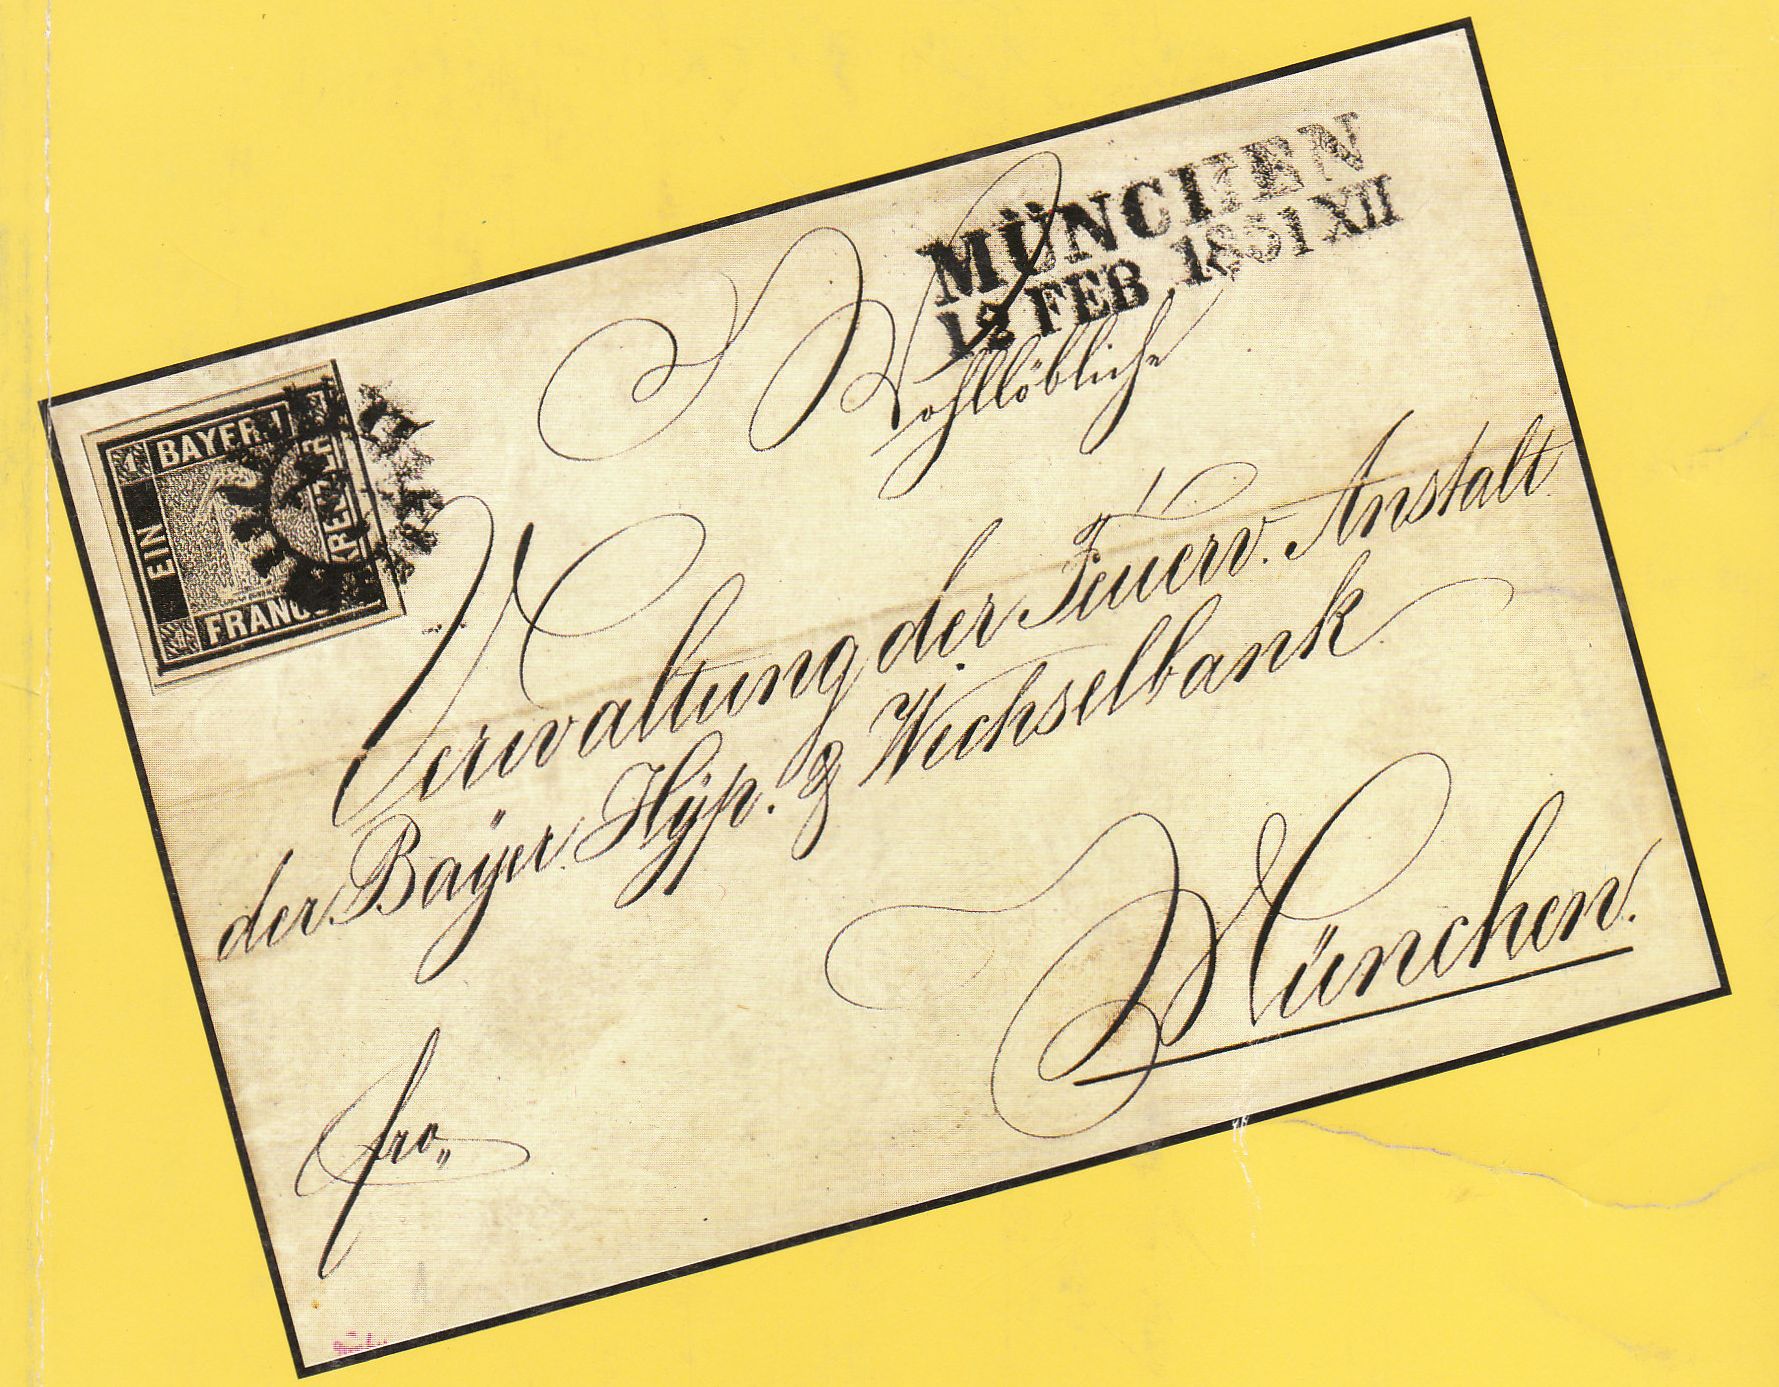 MÜNCHEN
12 FEB 1851 XII
BAYERN
EIN
KREUZER
FRANCO
Wohllöbliche
Verwaltung der Feuerv. Anstalt
der Bayer. Hÿp. & Wechselbank
München.
fro„